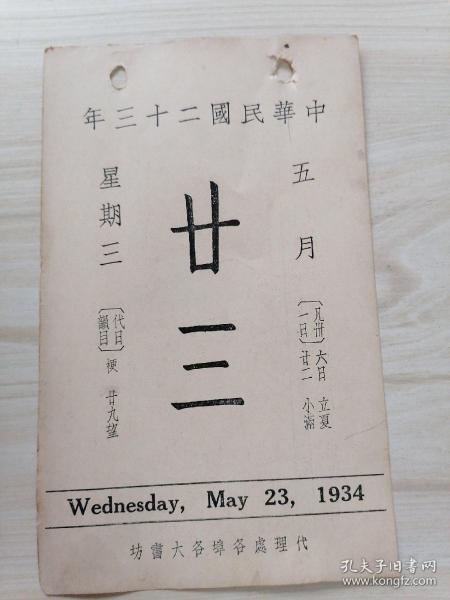 中華民國二十三年
五月
廿三
星期三
〔凡卅一日〕
六日 立夏
廿二 小滿
〔代日韻目〕梗 廿九望
Wednesday, May 23, 1934
代理處各埠各大書坊
孔夫子旧书网
www.kongfz.com